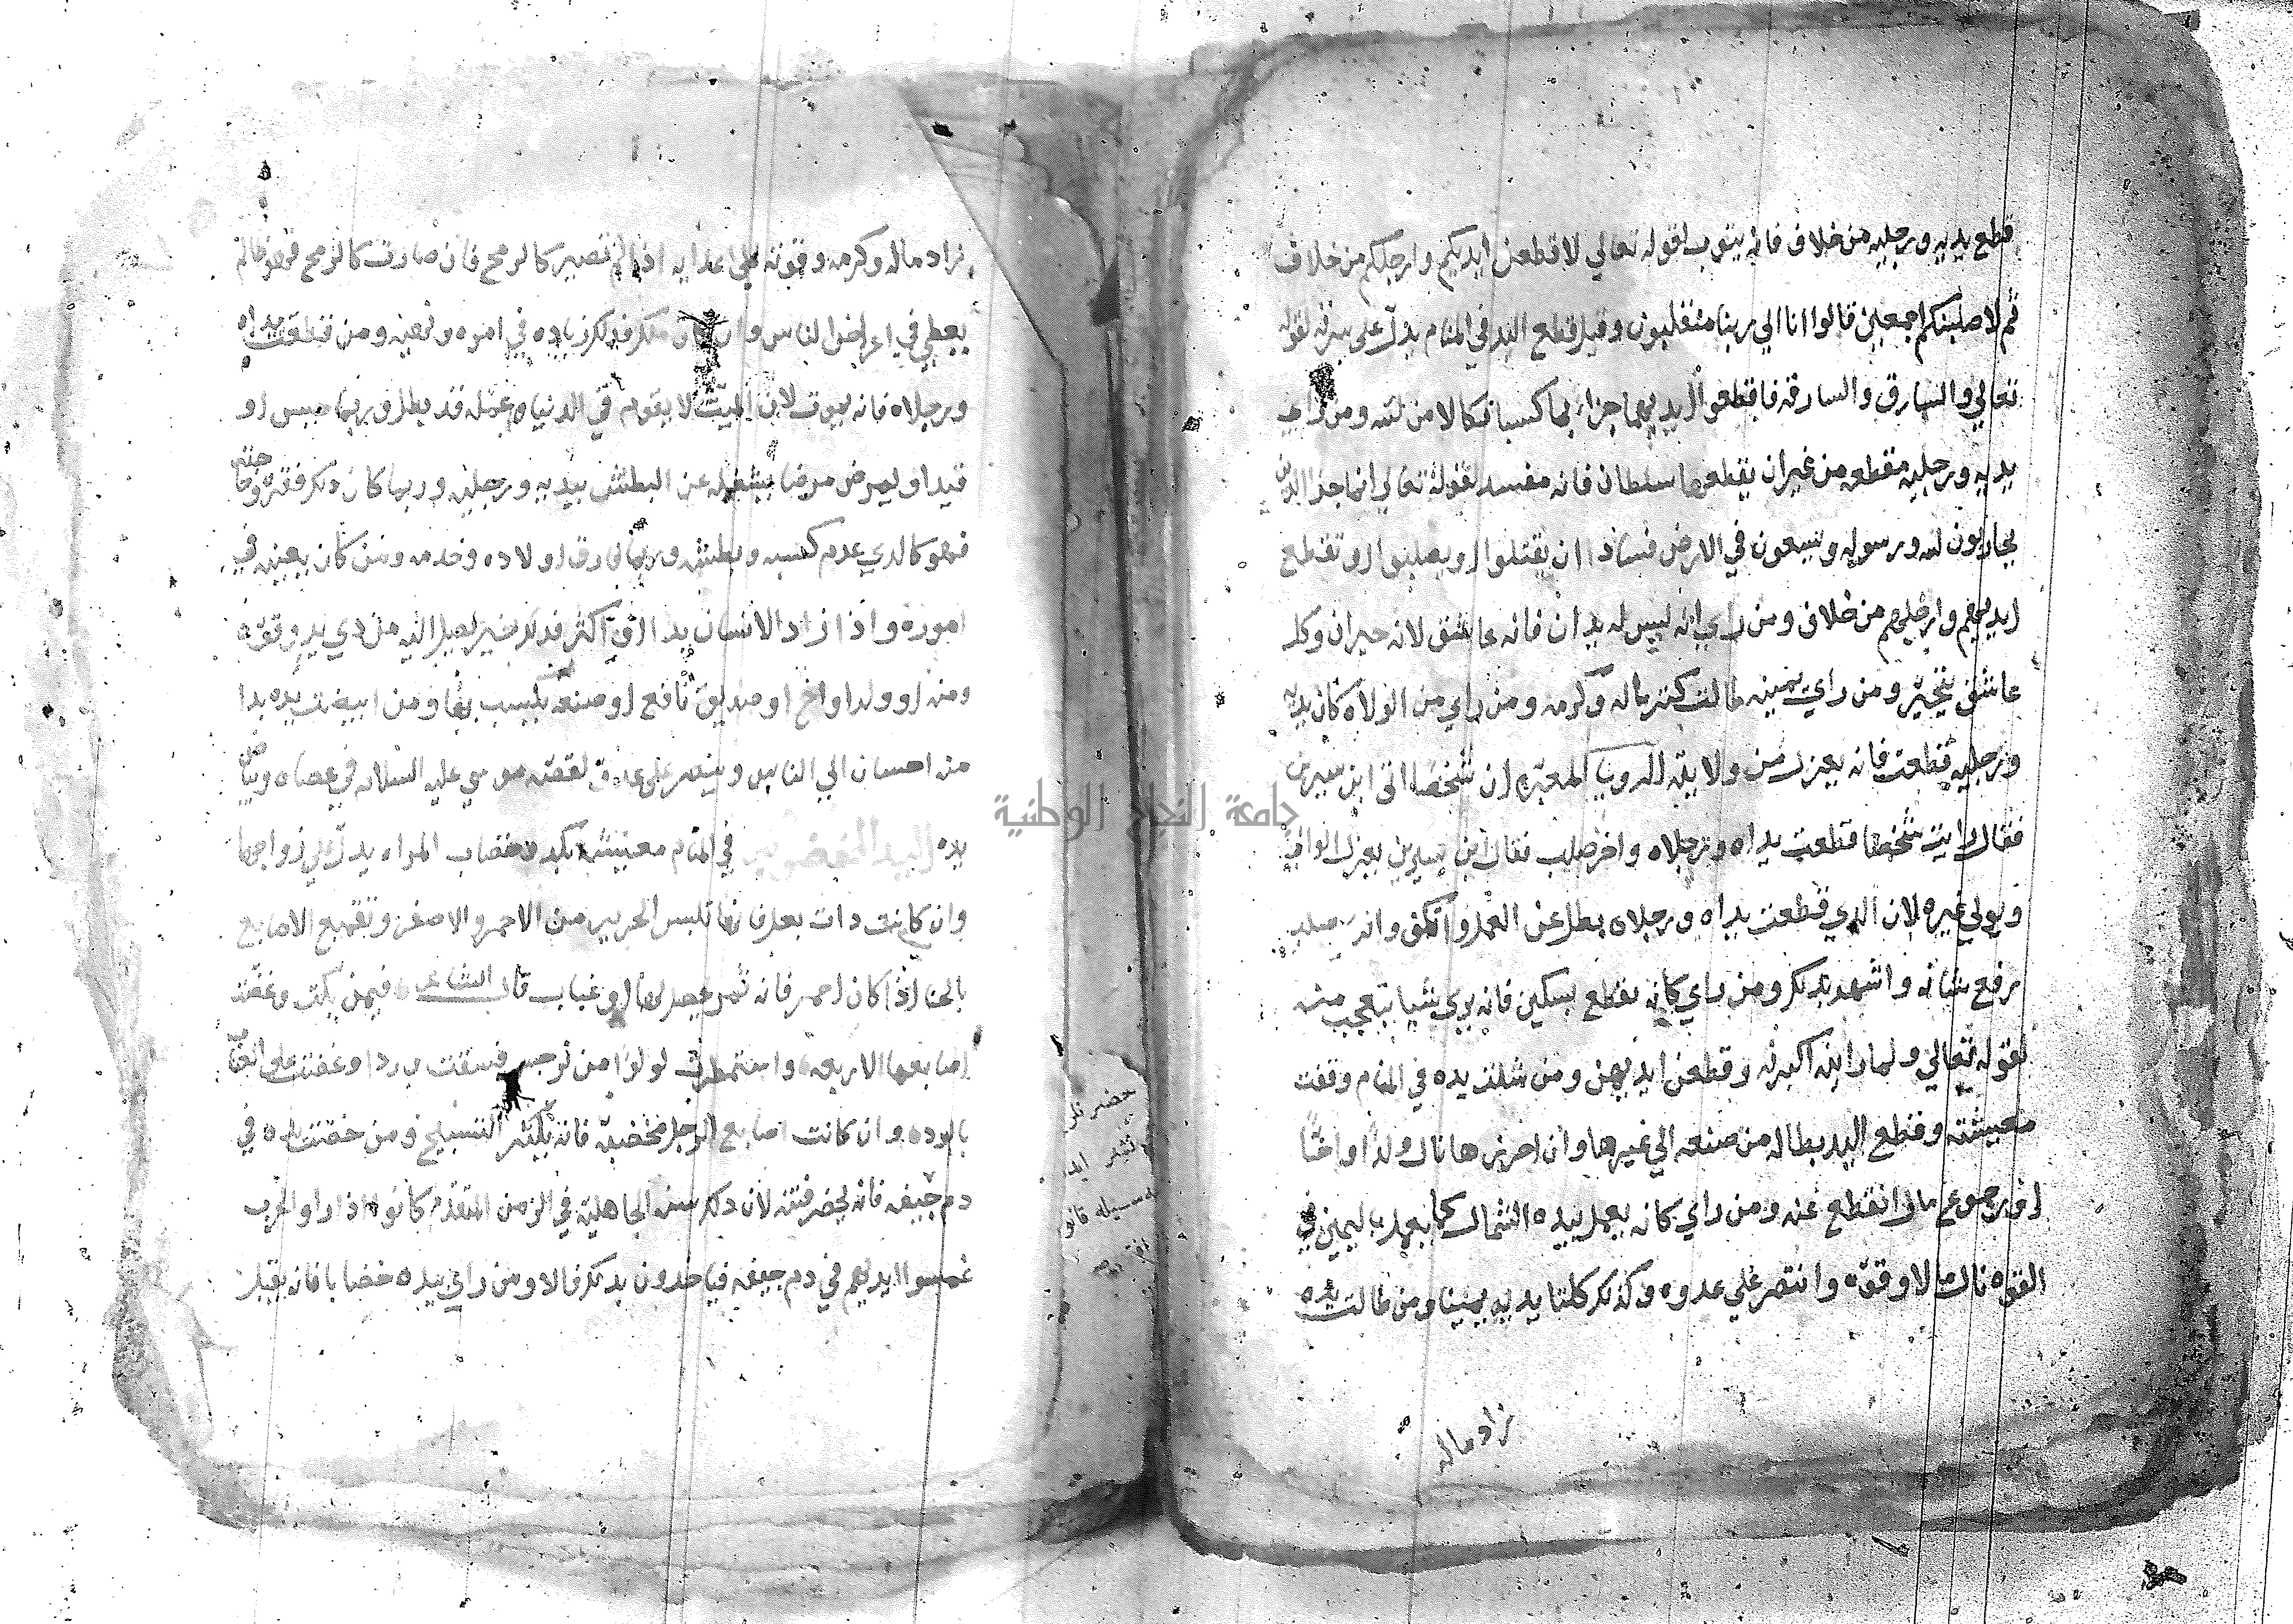 قطع يديه ورجليه من خلاف فانه يتوب لقوله تعالي لاقطعن ايديكم وارجلكم من خلاف
ثم لاصلبنكم اجمعين قالوا انا الي ربنا منقلبون وقيل قطع اليد في المنام يدل على سرقه لقوله
تعالي والسارق والسارقه فاقطعوا ايديهما جزاء بما كسبا نكالا من لله ومن راي
يديه ورجليه مقطعه من غير ان يقطعها سلطان فانه مفسد لقوله تعالي انما جزا الذين
يحاربون لله ورسوله ويسعون في الارض فسادا ان يقتلوا او يصلبوا او تقطع
ايديهم وارجلهم من خلاف ومن راي انه ليس له يدان فانه عاشق لانه حيران وكل
عاشق يتحير ومن راي يمينه طالت كثر ماله وكرمه ومن راي من الولاه كان يديه
ورجليه قطعت فانه يعزل من ولايته الرويا المعتبره ان شخصا اتى ابن سيرين
فقال رايت شخصا قطعت يداه ورجلاه واخر صلب فقال ابن سيرين يعزل الوالي
ويولي غيره لان الذي قطعت يداه ورجلاه بطل عن العمل والذي صلب
رفع شانه واشهد بذكر ومن راي كانه يقطع بسكين فانه يري شيا يتعجب منه
لقوله تعالي ولما راينه اكبرنه وقطعن ايديهن ومن شلت يده في المنام وقفت
معيشته وقطع اليد بطاله من صنعه الي غيرها وان احرزها نال ولدا او اخا
او رجوع مال انقطع عنه ومن راي كانه يعمل بيده الشمال كما يعمل باليمين في
القوه نال مالا وقوه وانتصر علي عدوه وكذلك كلتا يديه يمينا ومن طالت يده
زاد ماله
زاد ماله وكرمه وقوته علي اعدايه اذا لم تصير كالرمح فان صارت كالرمح فهو ظالم
يعطي في اعراض الناس وان كان ملك فذلك زياده في امره وتعينه ومن قطعت يداه
ورجلاه فانه يموت لان الميت لا يقوم في الدنيا وعمله قد بطل وربما حبس او
قيد او يمرض مرضا يشغله عن البطش بيديه ورجليه وربما كان ذلك فقره
فهو كالذي عدم كسبه وبطشه وربما فارق اولاده وخدمه ومن كان يعينه في
اموره واذا زاد الانسان يدا او اكثر فذلك خير يصل اليه من ذي يد وقوه
ومن او ولد او اخ او صديق نافع او صنعه يكسب بها ومن ابيضت يده بدا
منه احسان الي الناس وينصر علي عدوه لقصة موسي عليه السلام في عصاه وبياض
يده اليد في المنام معيشه بكد وخضاب المراه يدل علي زواجها
وان كانت ذات بعل فانها تلبس الحرير من الاحمر والاصفر وتقميع الاصابع
بالحنا اذا كان احمر فانه ثمر يحصل لها او غياب قال الشاعر فيمن بكت وعضت
اصابعها الاربعه واستمطرت لولوا من نرجس فسقت وردا وعضت على العناب
بالبرد وان كانت اصابع الرجل مخضبه فانه يكثر التسبيح ومن خضبت يده في
دم جيفه فانه يحضر فتنه لان ذلك سنه الجاهلية في الزمن المتقدم كانوا اذا ارادوا الحرب
غمسوا ايديهم في دم جيفه فياخذون بذلك فالا ومن راي بيده خضابا فانه يقبل
جامعة النجاح الوطنية